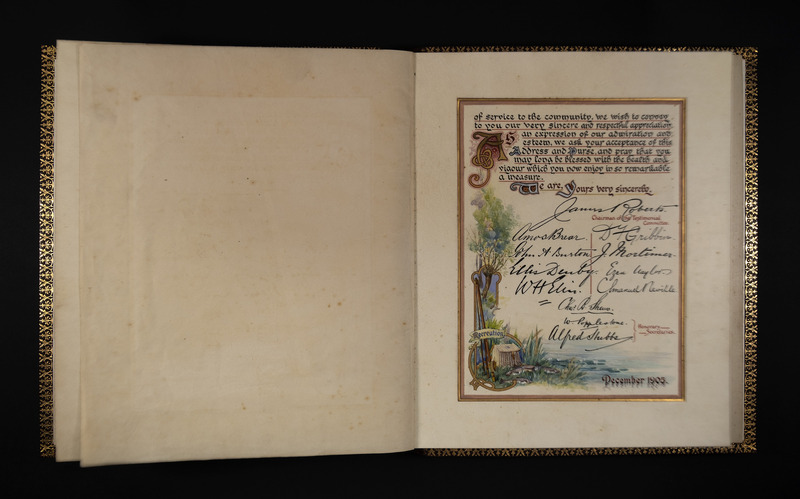 of service to the community, we wish to convey
to you our very sincere and respectful appreciation.
As an expression of our admiration and
esteem, we ask your acceptance of this
Address and Purse, and pray that you
may long be blessed with the health and
vigour which you now enjoy in so remarkable
a measure.
We are, Yours very sincerely,
James Roberts
Chairman of the Testimonial
Committee.
Amos Brear D. F. Gribbin
John A Burton J. Mortimer
Ellis Denby. Ezra
W H Elin. Emanuel Neville
Chas B. Shaw.
W.
Alfred Stubbs
Honorary
Secretaries.
Recreation
December 1903.